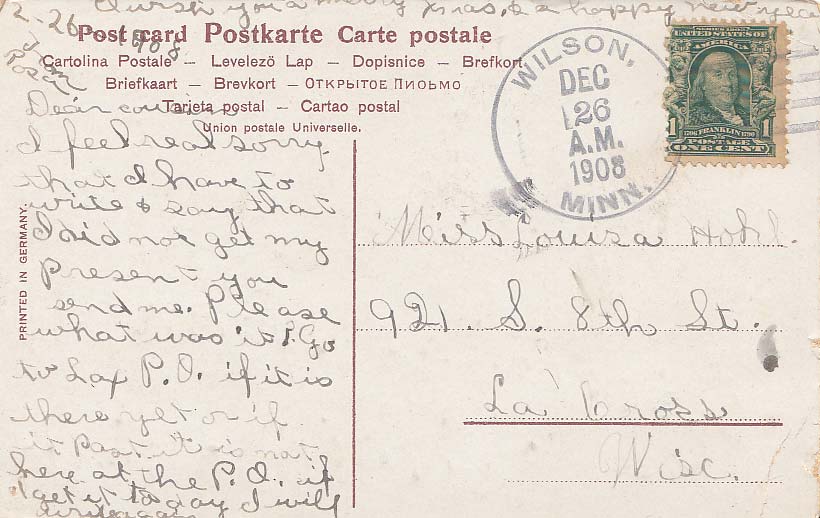 I wish you a merry Xmas, & a happy new year
2-26 1908
Post card Postkarte Carte postale
Cartolina Postale – Levelező Lap – Dopisnice – Brefkort
Briefkaart – Brevkort – Открытое Письмо
Tarjeta postal – Cartao postal
Union postale Universelle.
Dear cousin
I feel real sorry
that I have to
write & say that
I did not get my
present you
send me. Please
what was it? Go
to Lax P.O. if it is
there yet or if
it past it is not
here at the P.O. if
I get it to day I will
write again
From
Rosa
PRINTED IN GERMANY.
WILSON,
DEC
26
A.M.
1908
MINN.
SERIES 1902
UNITED STATES OF
AMERICA
1706 FRANKLIN 1790
1 POSTAGE 1
ONE CENT
Miss Louisa Hohl.
921. S. 8th St.
La Cross
Wisc.